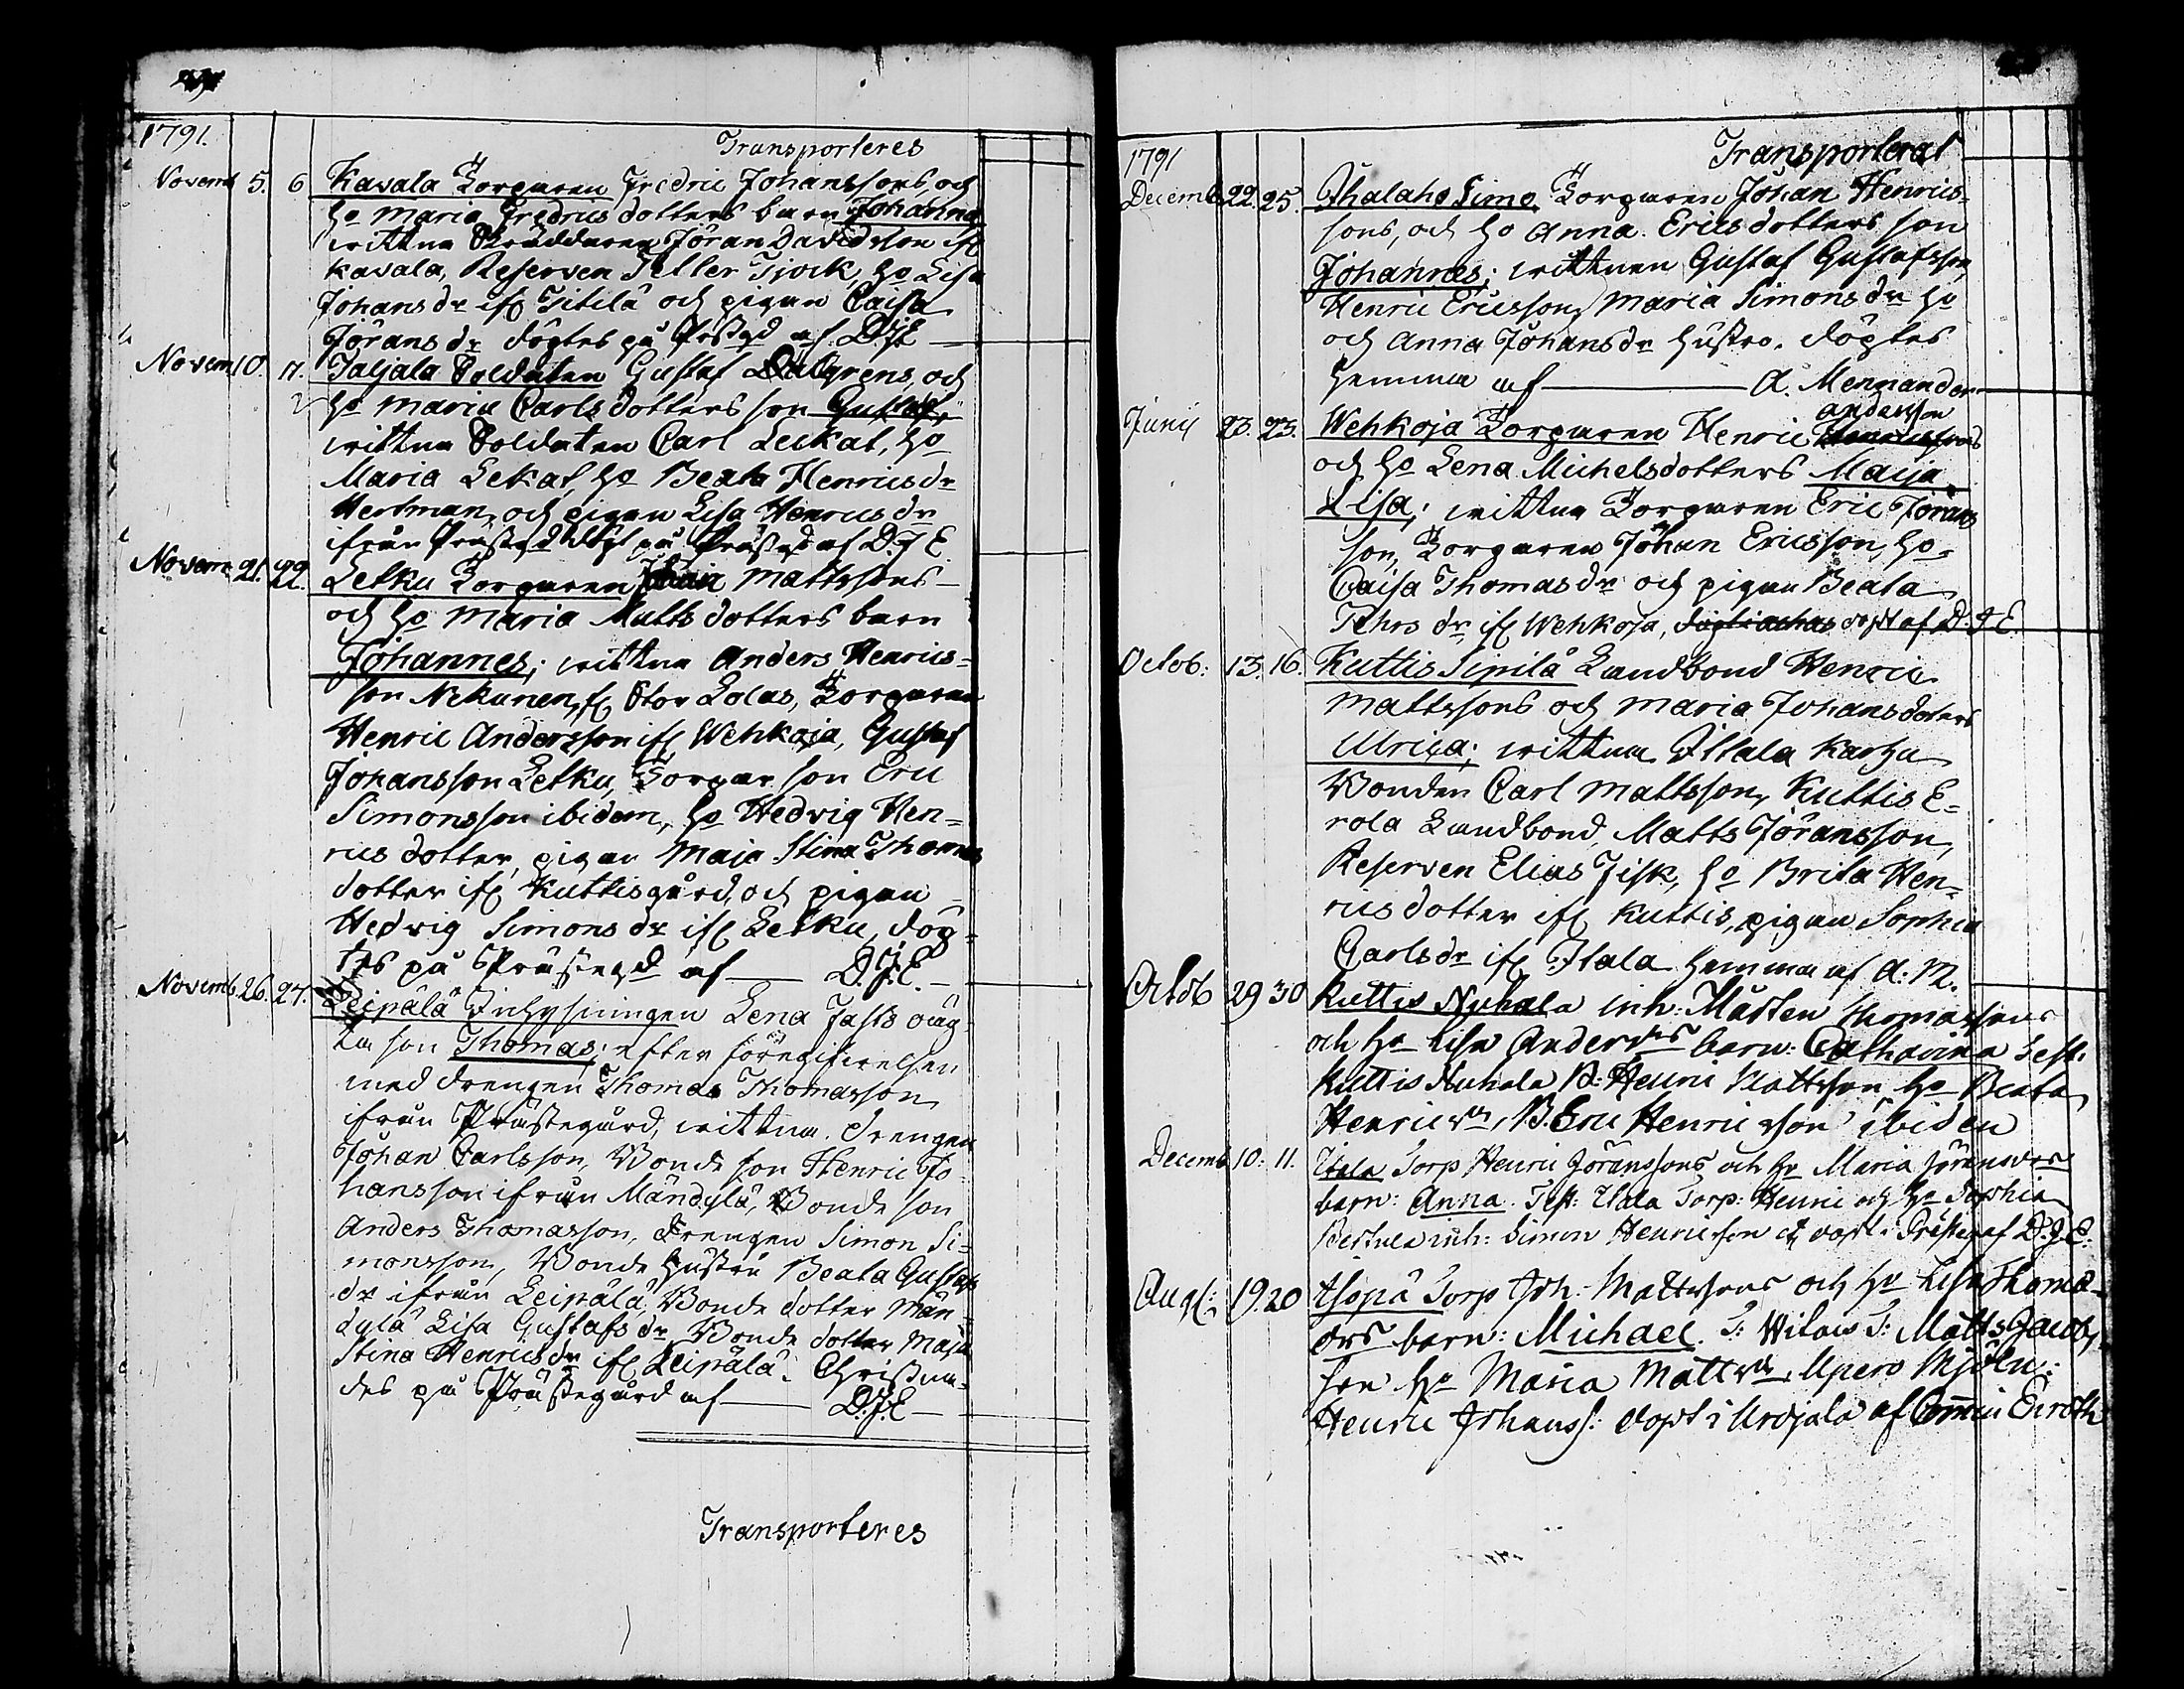 1791.
Transporteres
Novemb 5. 6 Kavala Torparen Fredric Johanssons, och
ho Maria Fredrics dotters barn Johanna
wittna Skräddaren Jöran Davidsson ifr
Kavala, Reserven Teller Tjock, ho Lisa
Johans dr ifr Titilä och pigan Caisa
Jörans dr döptes på Prästgd af D.J.E
Novem 10. 11. Taljala Soldaten Gustaf Dalgrens, och
ho Maria Carls dotters son Gustaf,
wittna Soldaten Carl Leckat, ho
Maria Lekat, ho Beata Henrics dr
Hertman, och pigan Lisa Henrics dr
ifrån Prästgd döpt på Prästgd af D. J E.
Novem 21. 22. Letku Torparen Mattssons
och ho Maria Matts dotters barn
Johannes; wittna Anders Henrics=
son Nekunen, fr Stor Lolas, Torparen
Henric Andersson ifr Wehkoja, Gustaf
Johansson Letku, Torpar son Eric
Simonsson ibidem, ho Hedvig Hen=
rics dotter, pigan Maja Stina Thomas
dotter ifr Kuttisgård, och pigan
Hedvig Simons dr ifr Letku, döp=
tes på Prästegd af D.J.E.
Novemb 26. 27. Leipälä Inhysningen Lena Jafts oäg
ta son Thomas; efter föregifvelsen
med drengen Thomas Thomasson
ifrån Prästegård, wittna. Drengen
Johan Carlsson, Bonde son Henric Jo=
hansson ifrån Mändylä, Bonde son
Anders Thomasson, Drengen Simon Si=
monsson, Bonde Hustru Beata Gustafs
dr ifrån Leipälä, Bonde dotter Män
dylä Lisa Gustafs dr Bonde dotter Maja
Stina Henrics dr ifr Leipälä. Christna=
des på Prästegård af D.J.E
Transporteres
1791
Transporterat
Decemb 22. 25. Thalaho Simo Torparen Johan Henrics=
sons, och ho Anna Erics dotters son
Johannes; wittnen Gustaf Gustafsson,
Henric Ericsson, Maria Simons dr ho
och Anna Johans dr hustro. döptes
hemma af A. Mennander
Junij 23. 23. Wehkoja Torparen Henric Andersson
och ho Lena Michelsdotters Maija
Lisa; wittna Torparen Eric Jörans
son, Torparen Johan Ericsson, ho
Caisa Thomas dr och pigan Beata
Pehrs dr, ifr Wehkoja, döpt af D. J E.
Octob: 13. 16. Kuttis Sipilä Landbond Henric
Mattssons och Maria Johans doters
Ulrica; wittna Illala Karhu
Bonden Carl Mattsson, Kuttis E=
rola Landbond, Matts Jöransson,
Reserven Elias Fisk, ho Brita Hen=
rics dotter ifr Kuttis, pigan Sophia
Carls dr ifr Itala hemma af A. M.
Octob 29 30 Kuttis Nuhala inh: Mårten Thomassons
och ho Lisa Anders drs barn: Catharina Test:
Kuttis Nuhala B: Henric Mattsson ho Beata
Henrics dr, B. Eric Henricsson ibidem
Decemb 10: 11. Itala Torp Henric Jöranssons och ho Maria Jörans drs
barn: Anna. Test: Itala Torp: Henric och ho Sophia
Bertula inh: Simon Henricsson et döpt i Prästeg af D.J.E:
Aug: 19. 20 Isopä Torp Joh: Mattssons och ho Lisa Thoma
drs barn: Michael. T: Wilais T: Matts Jacobs,
son ho Maria Matts dr, Upero Mjöln:
Henric Johanss: döpt i Urdjala af Commin Eneroth